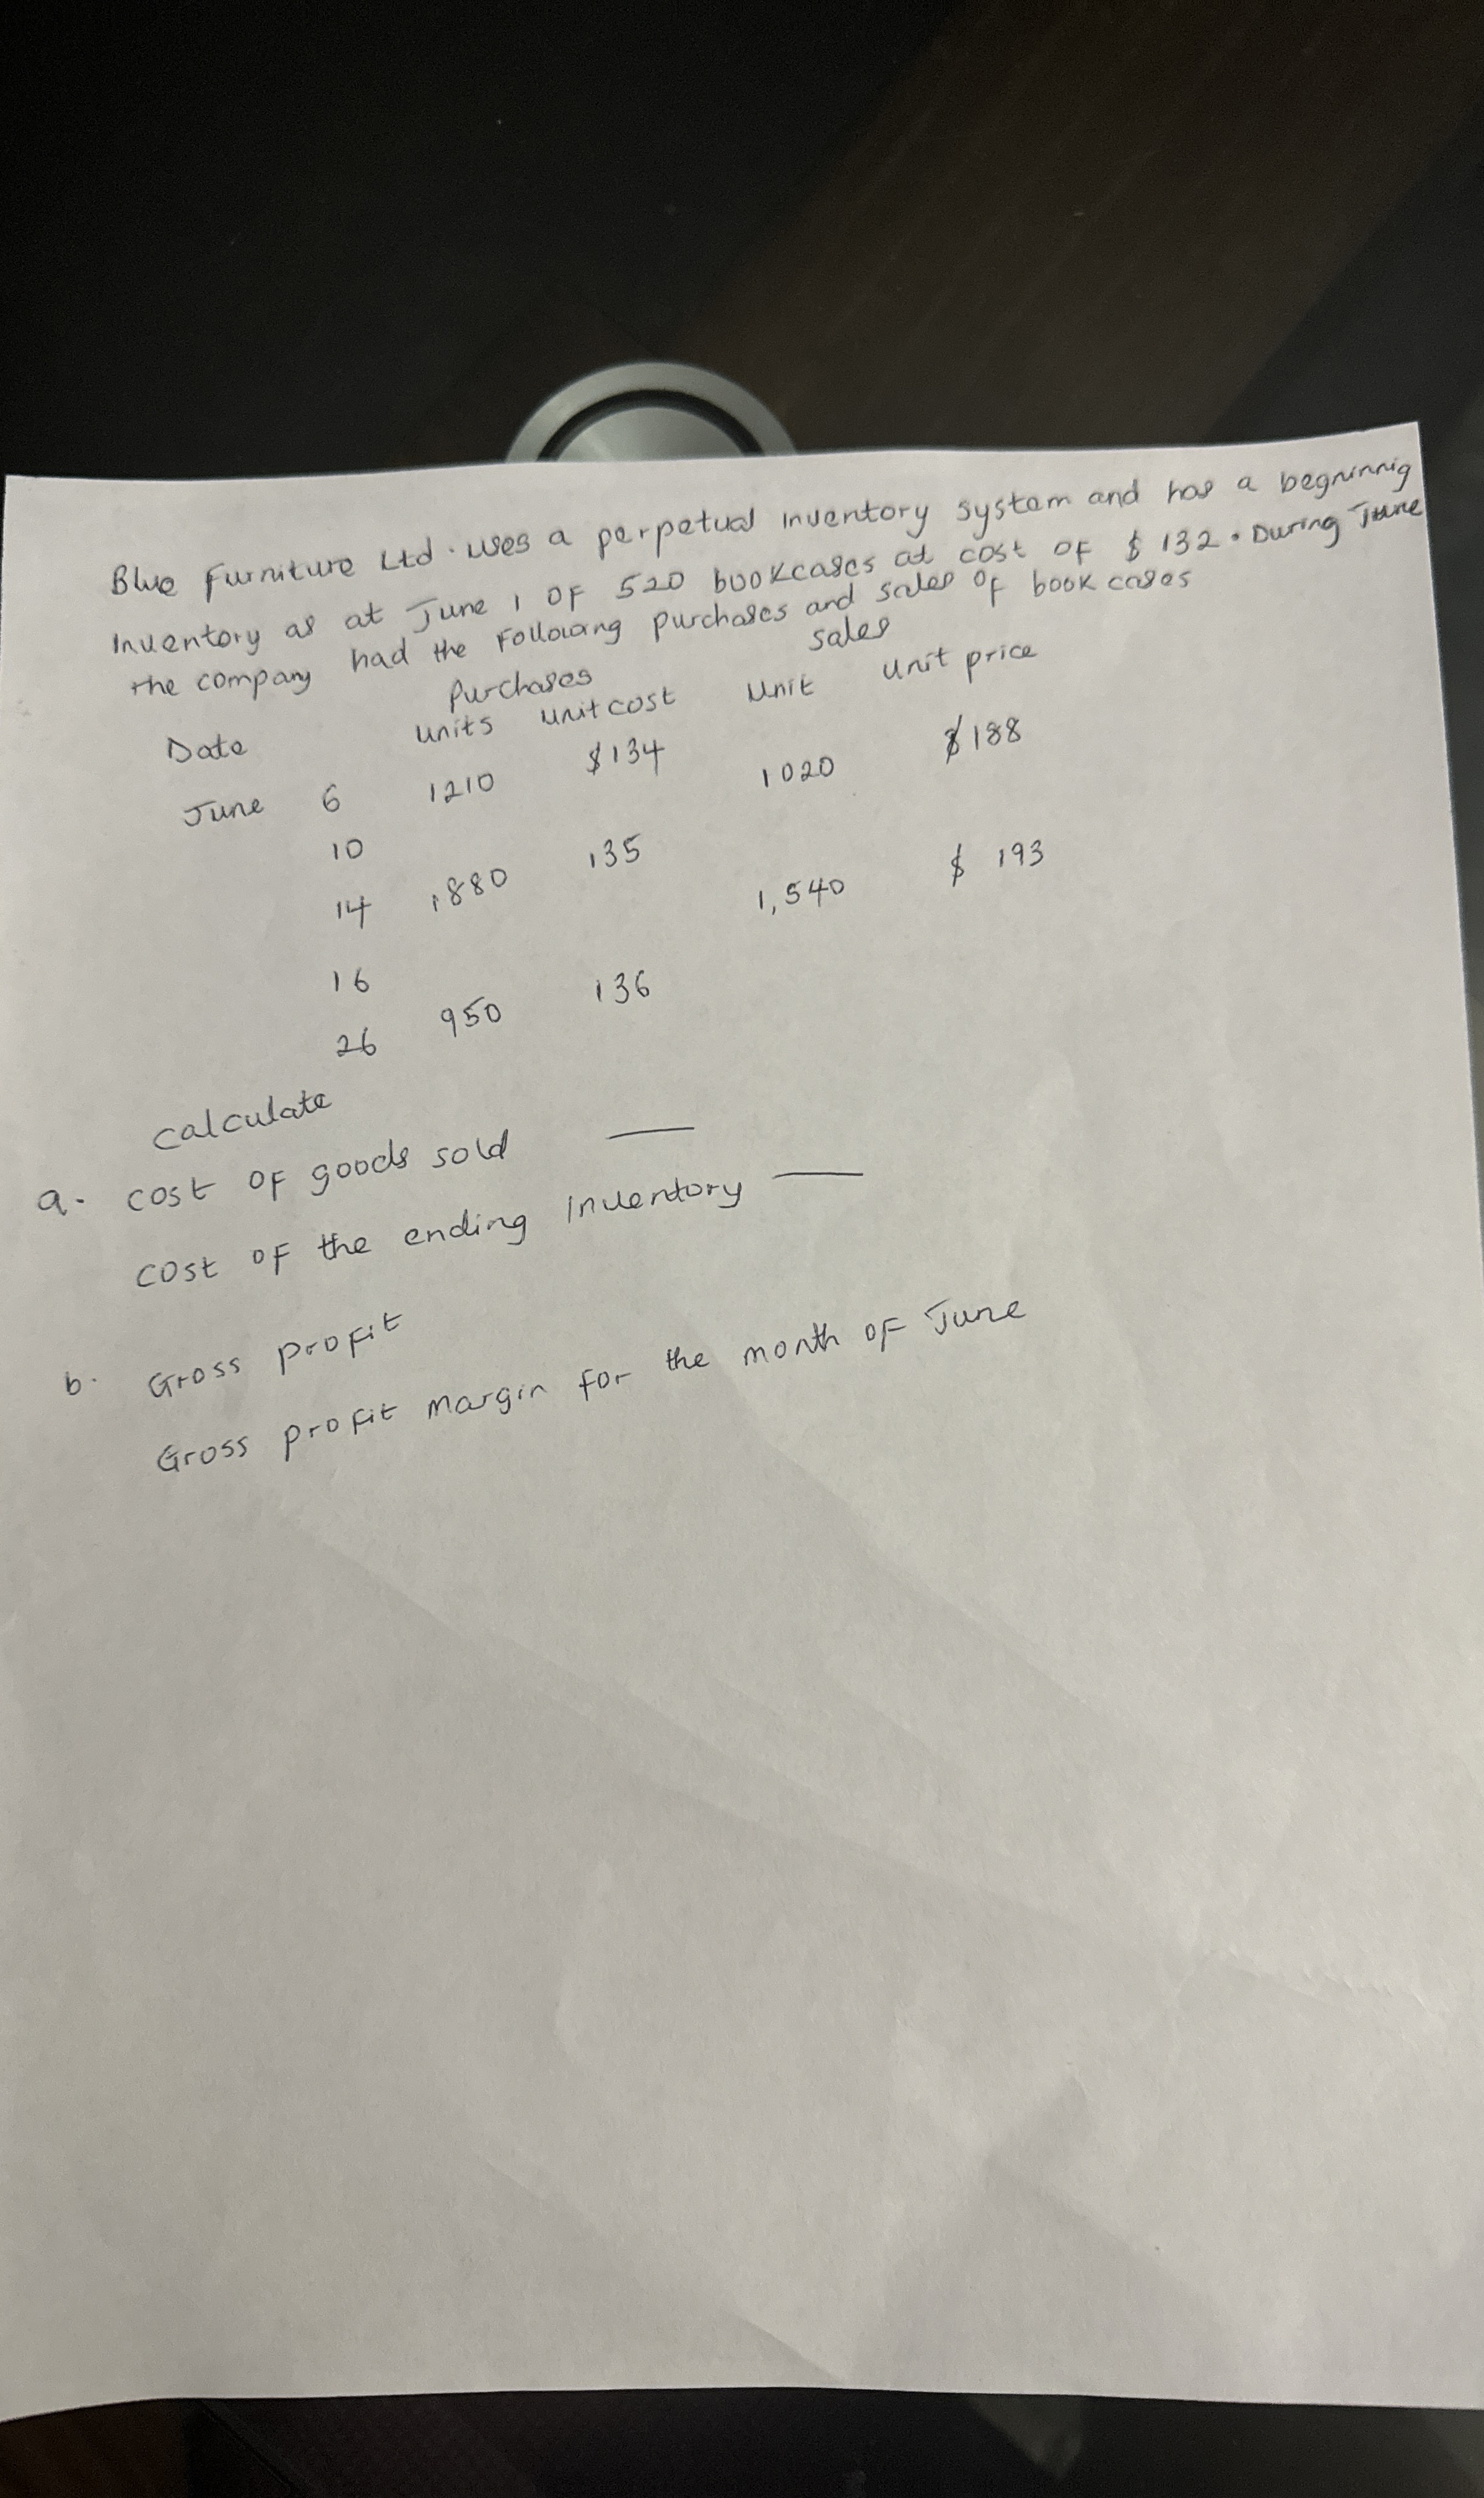 Blue Furniture Ltd. uses a perpetual inventory system and has a beginnig
Inventory as at June 1 of 520 bookcases at cost of $ 132. During June
the company had the following purchases and sales of book cases
Purchases sales
Date units unit cost Unit unit price
June 6 1210 $134
10 1020 $188
14 1880 135
16 1,540 $ 193
26 950 136
calculate
a. cost of goods sold
cost of the ending inventory
b. Gross profit
Gross profit margin for the month of June